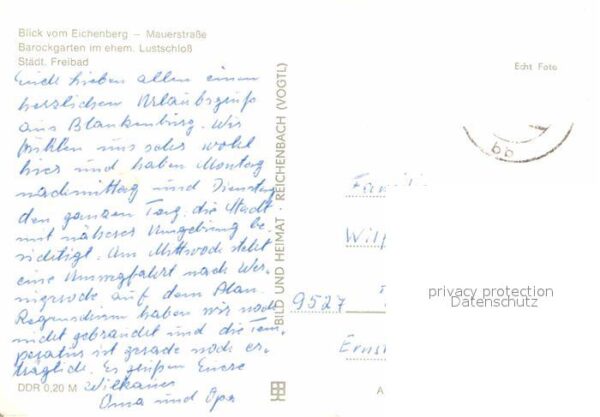 Blick vom Eichenberg – Mauerstraße
Barockgarten im ehem. Lustschloß
Städt. Freibad
Euch lieben allen einen
herzlichen Urlaubsgruß
aus Blankenburg. Wir
fühlen uns sehr wohl
hier und haben Montag
nachmittag und Dienstag
den ganzen Tag, die Stadt
mit näherer Umgebung be-
sichtigt. Am Mittwoch steht
eine Umwegfahrt nach Wer-
nigerode auf dem Plan.
Regenschirm haben wir noch
nicht gebraucht und die Tem-
peratur ist gerade noch er-
träglich. Es grüßen Eure
Oma und Opa
DDR 0,20 M
BILD UND HEIMAT · REICHENBACH (VOGTL)
Echt Foto
Wilf
9527
Ernst
A
privacy protection
Datenschutz